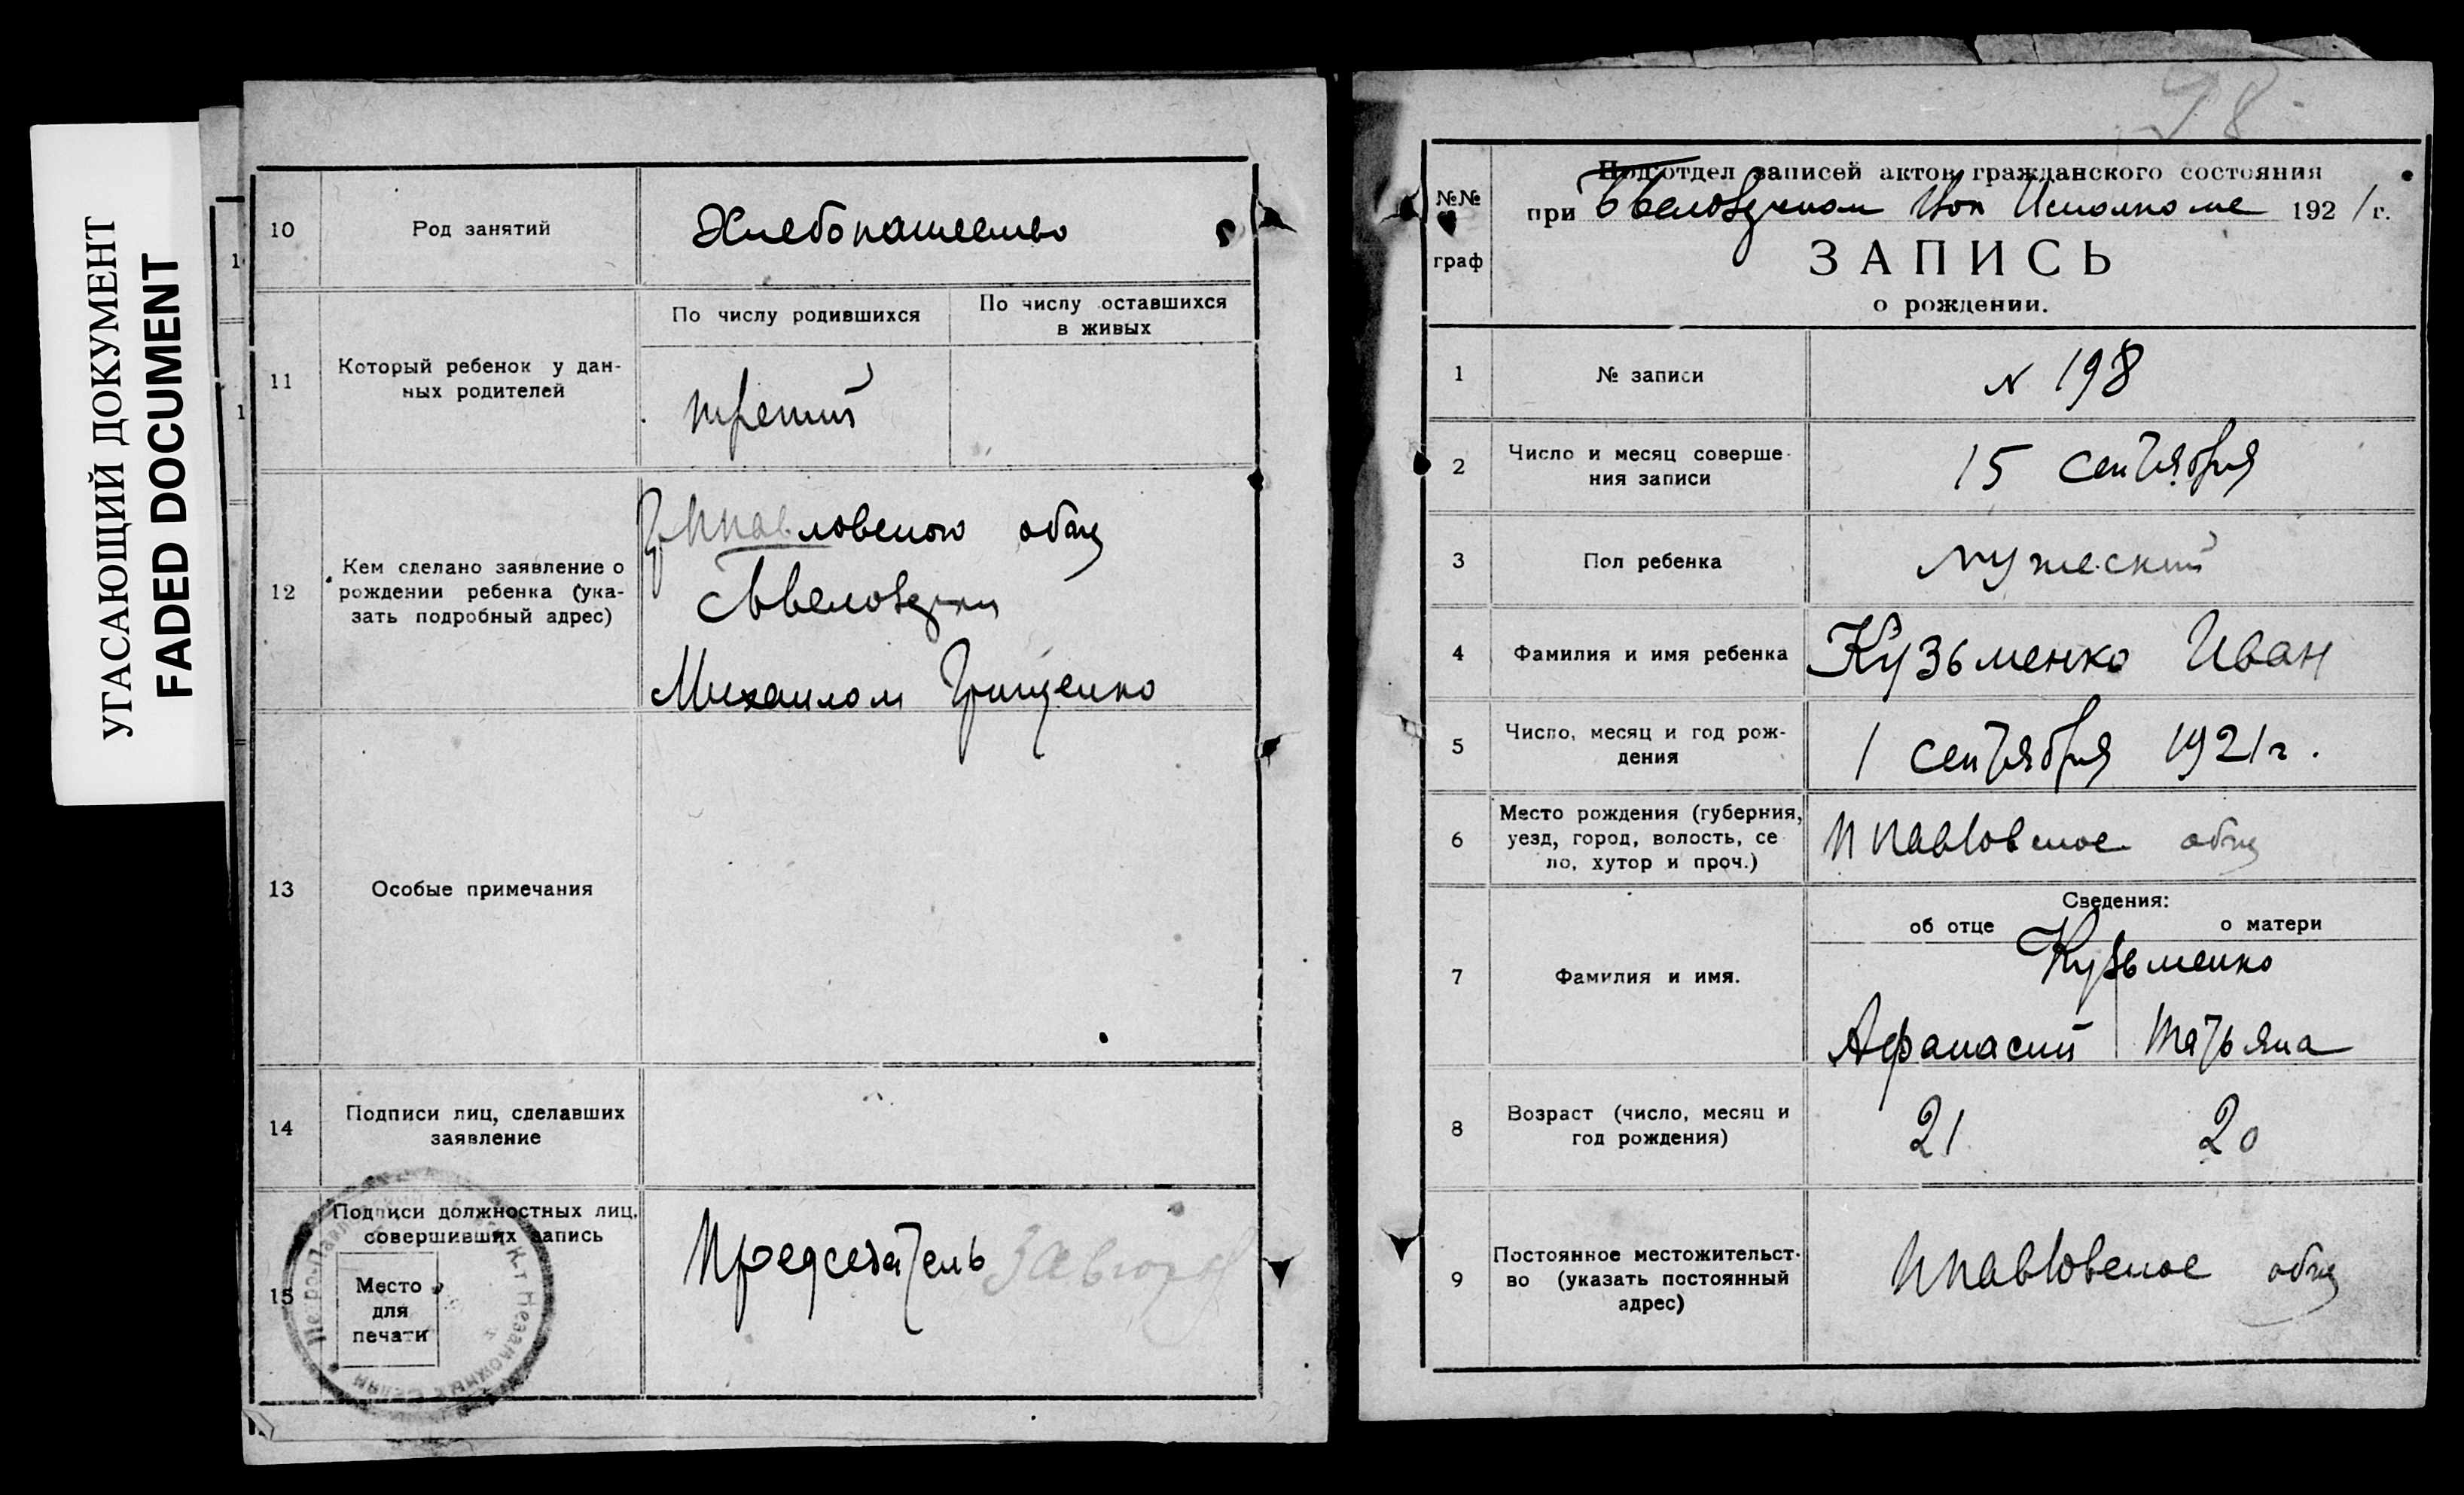 УГАСАЮЩИЙ ДОКУМЕНТ
FADED DOCUMENT
10
Род занятий
Хлебопашество
11
Который ребенок у дан-
ных родителей
По числу родившихся
По числу оставшихся
в живых
третий
12
Кем сделано заявление о
рождении ребенка (ука-
зать подробный адрес)
Ппавловского общ
Михаилом Грищенко
13
Особые примечания
14
Подписи лиц, сделавших
заявление
15
Подписи должностных лиц,
совершивших запись
Место
для
печати
Председатель
98
№№
граф
Подотдел записей актов гражданского состояния
при Исполкоме 1921 г.
ЗАПИСЬ
о рождении.
1
№ записи
N 198
2
Число и месяц соверше-
ния записи
15 сентября
3
Пол ребенка
мужеский
4
Фамилия и имя ребенка
Кузьменко Иван
5
Число, месяц и год рож-
дения
1 сентября 1921 г.
6
Место рождения (губерния,
уезд, город, волость, се
ло, хутор и проч.)
Ппавловское общ
Сведения:
об отце
о матери
7
Фамилия и имя.
Кузьменко
Афанасий Татьяна
8
Возраст (число, месяц и
год рождения)
21 20
9
Постоянное местожительст-
во (указать постоянный
адрес)
Ппавловское общ